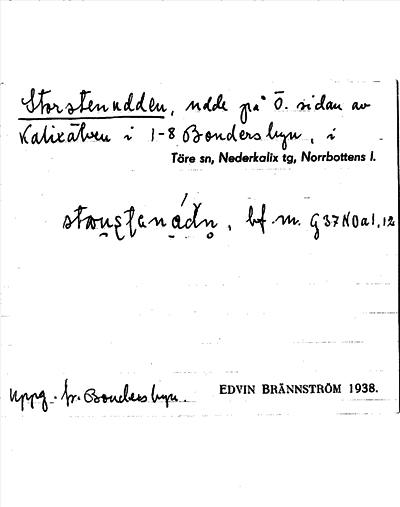 Storstenudden, udde på Ö. sidan av
Kalixälven i 1-8 Bondersbyn, i
Töre sn, Nederkalix tg, Norrbottens l.
bf. m. G37N0a1,12
Uppg. fr. Bondersbyn.
EDVIN BRÄNNSTRÖM 1938.